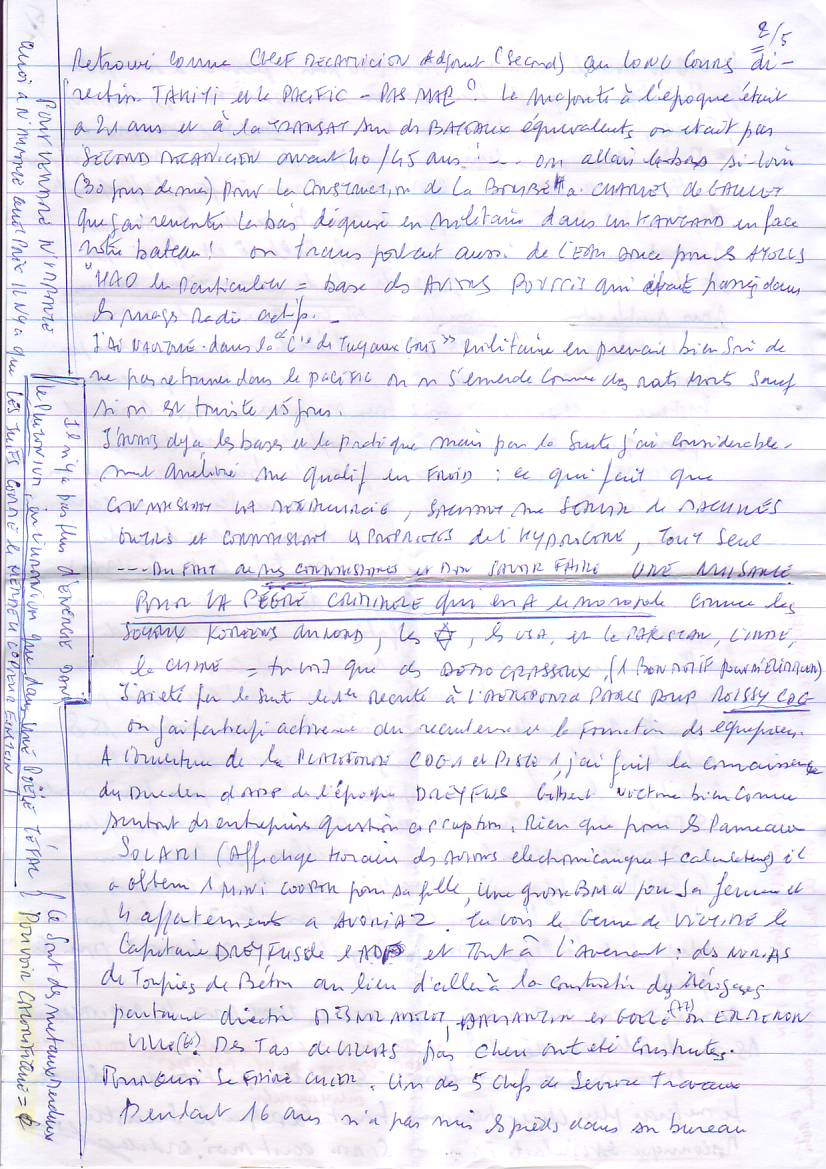 2/5
Retrouvé comme CHEF MECANICIEN Adjoint (Second) au LONG COURS di-
rection TAHITI et le PACIFIC - PAS MAL ? la majorité à l'époque était
à 21 ans et à la TRANSAT sur des BATEAUX équivalents on était pas
SECOND MECANICIEN avant 40/45 ans ! --- on allait là bas si loin
(30 jours de mer) pour la CONSTRUCTION de la BOMBE A CHARLES de GAULLE
que j'ai rencontré là bas, déguisé en militaire dans un HANGARD en face
notre bateau ! on transportait aussi de l'EAU douce pour les ATOLLS
"HAO en particulier = base des AVIONS POURRIS qui étaient passés dans
les nuages Radio actifs. -
J'AI NAVIGUÉ dans la "Cie de Tuyaux GRIS" militaire en prevoit bien sûr de
ne pas retourner dans le pacific on on s'emerde comme des rats morts sauf
si on est touriste 15 jours.
J'avais deja les bases et la pratique mais par la suite j'ai considerable-
ment amélioré ma qualif en FROID : ce qui fait que
CONNAISSANT LA METALLURGIE, SACHANT me SERVIR de MACHINES
OUTILS et CONNAISSANT les PROPRIETES de l'HYDROGENE, TOUT SEUL
---- DU FAIT de mes CONNAISSANCES et MON SAVOIR FAIRE UNE NUISANCE
POUR LA PEGRE CRIMINELE qui en A le monopole comme les
KOREENS du NORD, les ✡, les USA, et le PAKISTAN, L'INDE,
la CHINE = que des DEMOCRASSEUX, (1 BON MOTIF pour M'ELIMINER)
J'ai été par la suite le 1er recruté à l'AEROPORT de PARIS POUR ROISSY CDG
où j'ai participé activement au recrutement et la Formation des equipiers.
A l'ouverture de la PLATEFORME CDG 1 et PISTE 1, j'ai fait la connaissance
du Directeur d'ADP de l'époque DREYFUS Gilbert victime bien connue
surtout des entreprises question corruption. Rien que pour les Panneaux
SOLARI (Affichage Horaires des AVIONS electromecanique + calculateurs) il
a obtenu 1 MINI COOPER pour sa fille, Une grosse BMW pour sa femme et
4 appartements à AVORIAZ. Tu vois le Genre de VICTIME le
Capitaine DREYFUS de l'ADP et Tout à l'Avenant : des NORIAS
de Toupies de Béton au lieu d'aller à la construction des Aérogares
partaient direction MESNIL AMELOT, DAMMARTIN et GOELE (77) ou ERMENON
VILLE (60). Des Tas de VILLAS pas cheri ont été construites.
POURQUOI Se FAIRE CHIER. L'un des 5 Chefs de Service Travaux
Pendant 16 ans n'a pas mis les pieds dans son bureau
POUR VENDRE N'IMPORTE
QUOI A N'IMPORTE QUEL PRIX IL N'Y a que LES JUIFS COMME le MENTEUR COPIEUR EINSTEIN
Il n'y a pas plus d'ENERGIE DANS
le PLUTONIUM, ou l'uranium que dans UNE POËLE TEFAL
Ce sont des metaux merdeux
POUVOIR CALORIFIQUE = 0